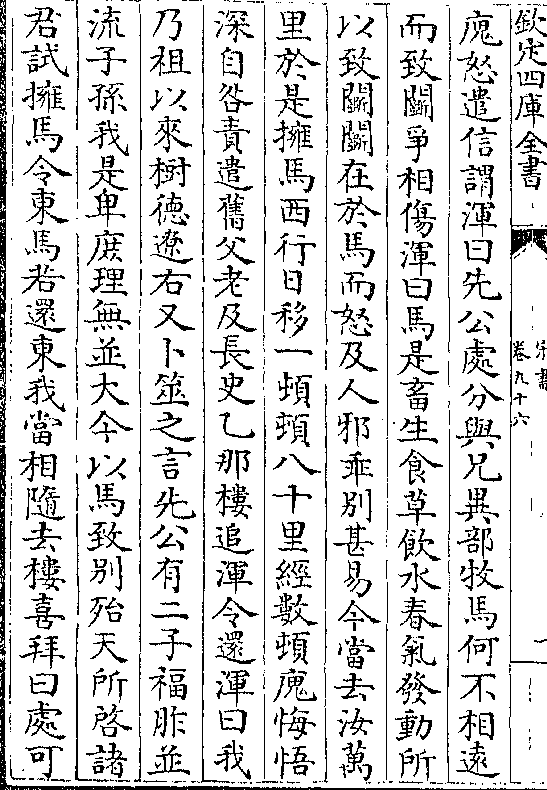 欽定四庫全書
宋書
卷九十六
一
廆怒遣信謂渾曰先公處分與兄異部牧馬何不相逺
而致鬭爭相傷渾曰馬是畜生食草飲水春氣發動所
以致鬭鬭在於馬而怒及人邪乖别甚易今當去汝萬
里於是擁馬西行日移一頓頓八十里經數頓廆悔悟
深自咎責遣舊父老及長史乙那樓追渾令還渾曰我
乃祖以來樹徳遼右又卜筮之言先公有二子福胙並
流子孫我是卑庶理無並大今以馬致别殆天所啓諸
君試擁馬令東馬若還東我當相隨去樓喜拜曰處可